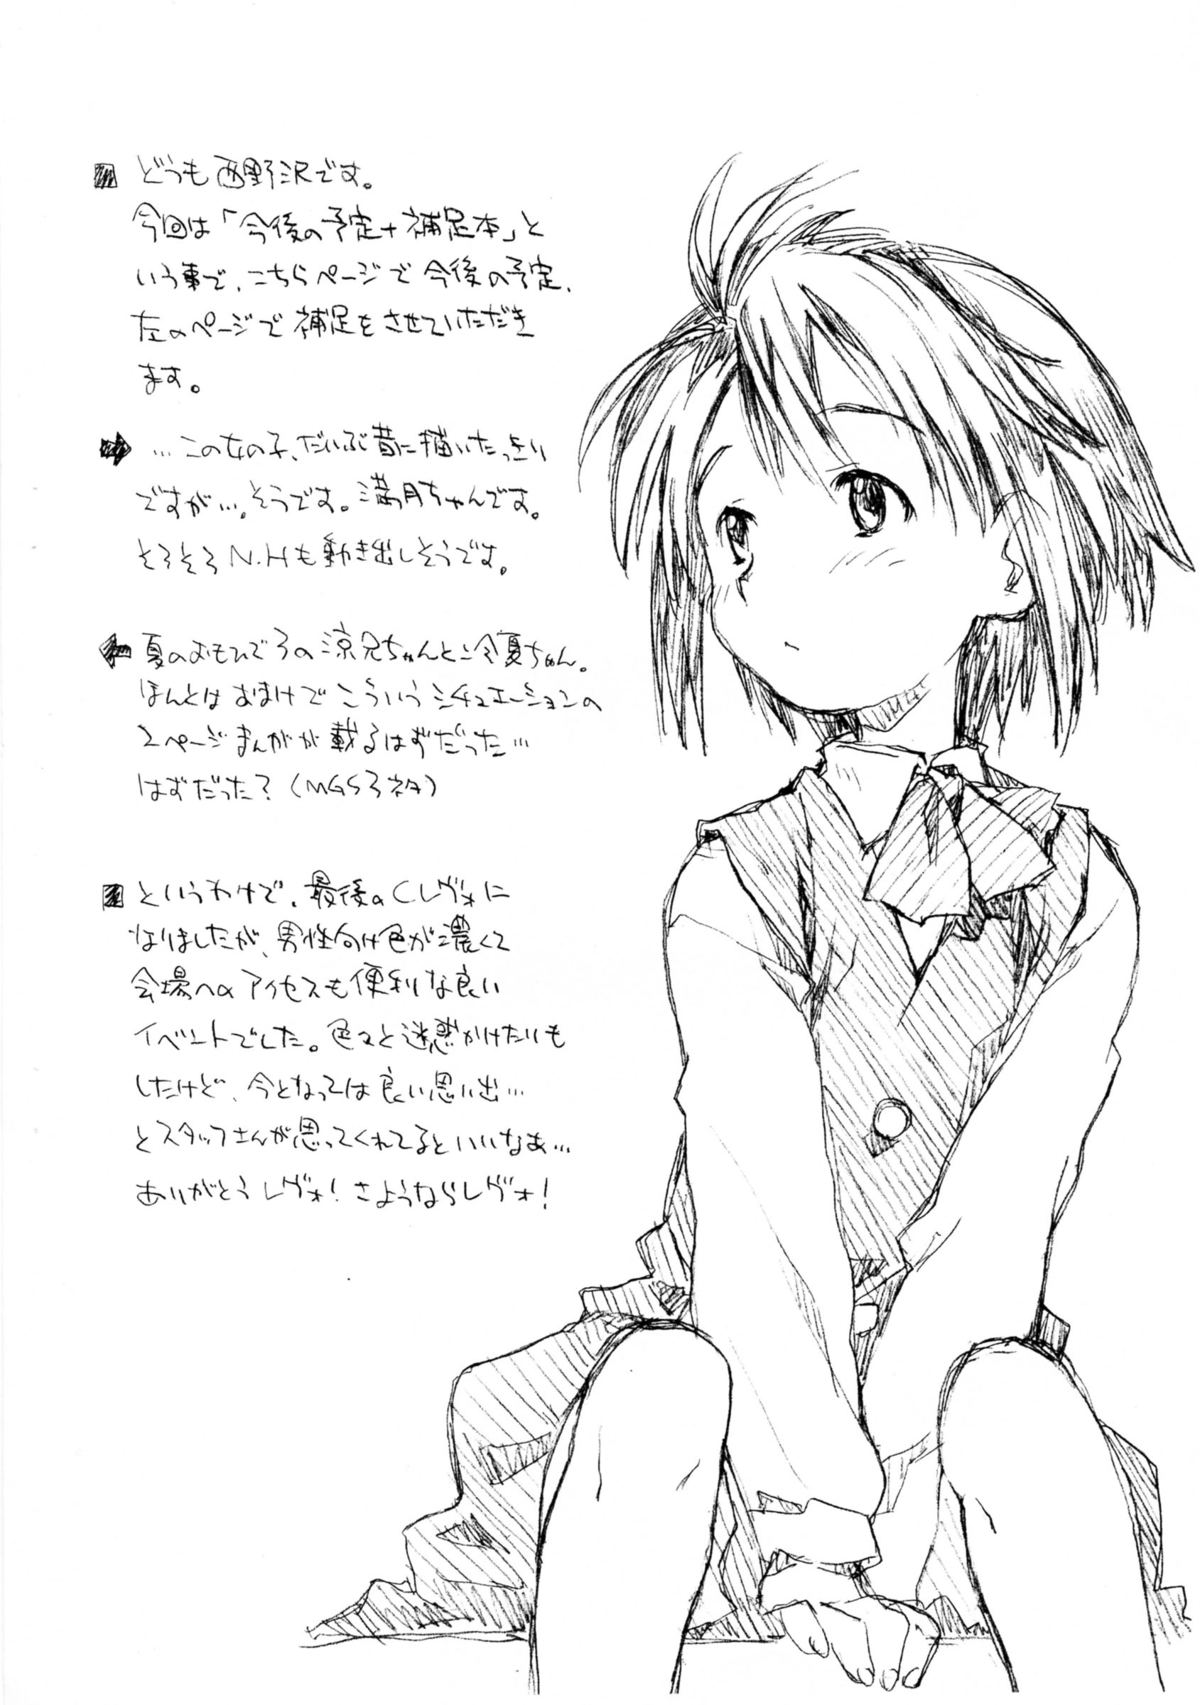 どうも西野沢です。
今回は「今後の予定+補足本」と
いう事で、こちらページで今後の予定、
左のページで補足をさせていただき
ます。
…この女の子、だいぶ昔に描いたっきり
ですが…。そうです。満月ちゃんです。
そろそろN.Hも動き出しそうです。
夏のおもひで3の涼兄ちゃんと冷夏ちゃん。
ほんとはおまけでこういうシチュエーションの
2ページまんがが載るはずだった…
はずだった?(MGS3ネタ)
というわけで、最後のCレヴォに
なりましたが、男性向け色が濃くて
会場へのアクセスも便利な良い
イベントでした。色々と迷惑かけたりも
したけど、今となっては良い思い出…
とスタッフさんが思ってくれてるといいなぁ…
ありがとうレヴォ!さようならレヴォ!